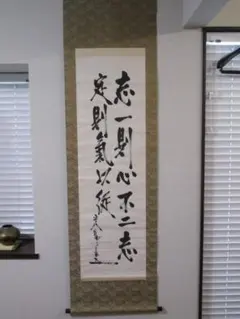 志一則心不二志
定則氣以従